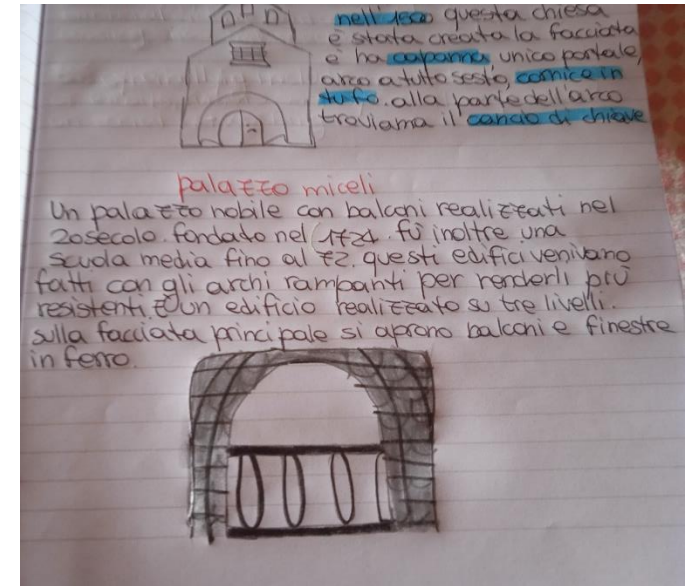 nell'1500 questa chiesa
è stata creata la facciata
e ha capanna, unico portale,
arco a tutto sesto, cornice in
tufo. alla parte dell'arco
troviama il concio di chiave
palazzo miceli
Un palazzo nobile con balconi realizzati nel
20secolo. fondato nel 1724. fù inoltre una
scuola media fino al 72. questi edifici venivano
fatti con gli archi rampanti per renderli più
resistenti. È un edificio realizzato su tre livelli.
sulla facciata principale si aprono balconi e finestre
in ferro.